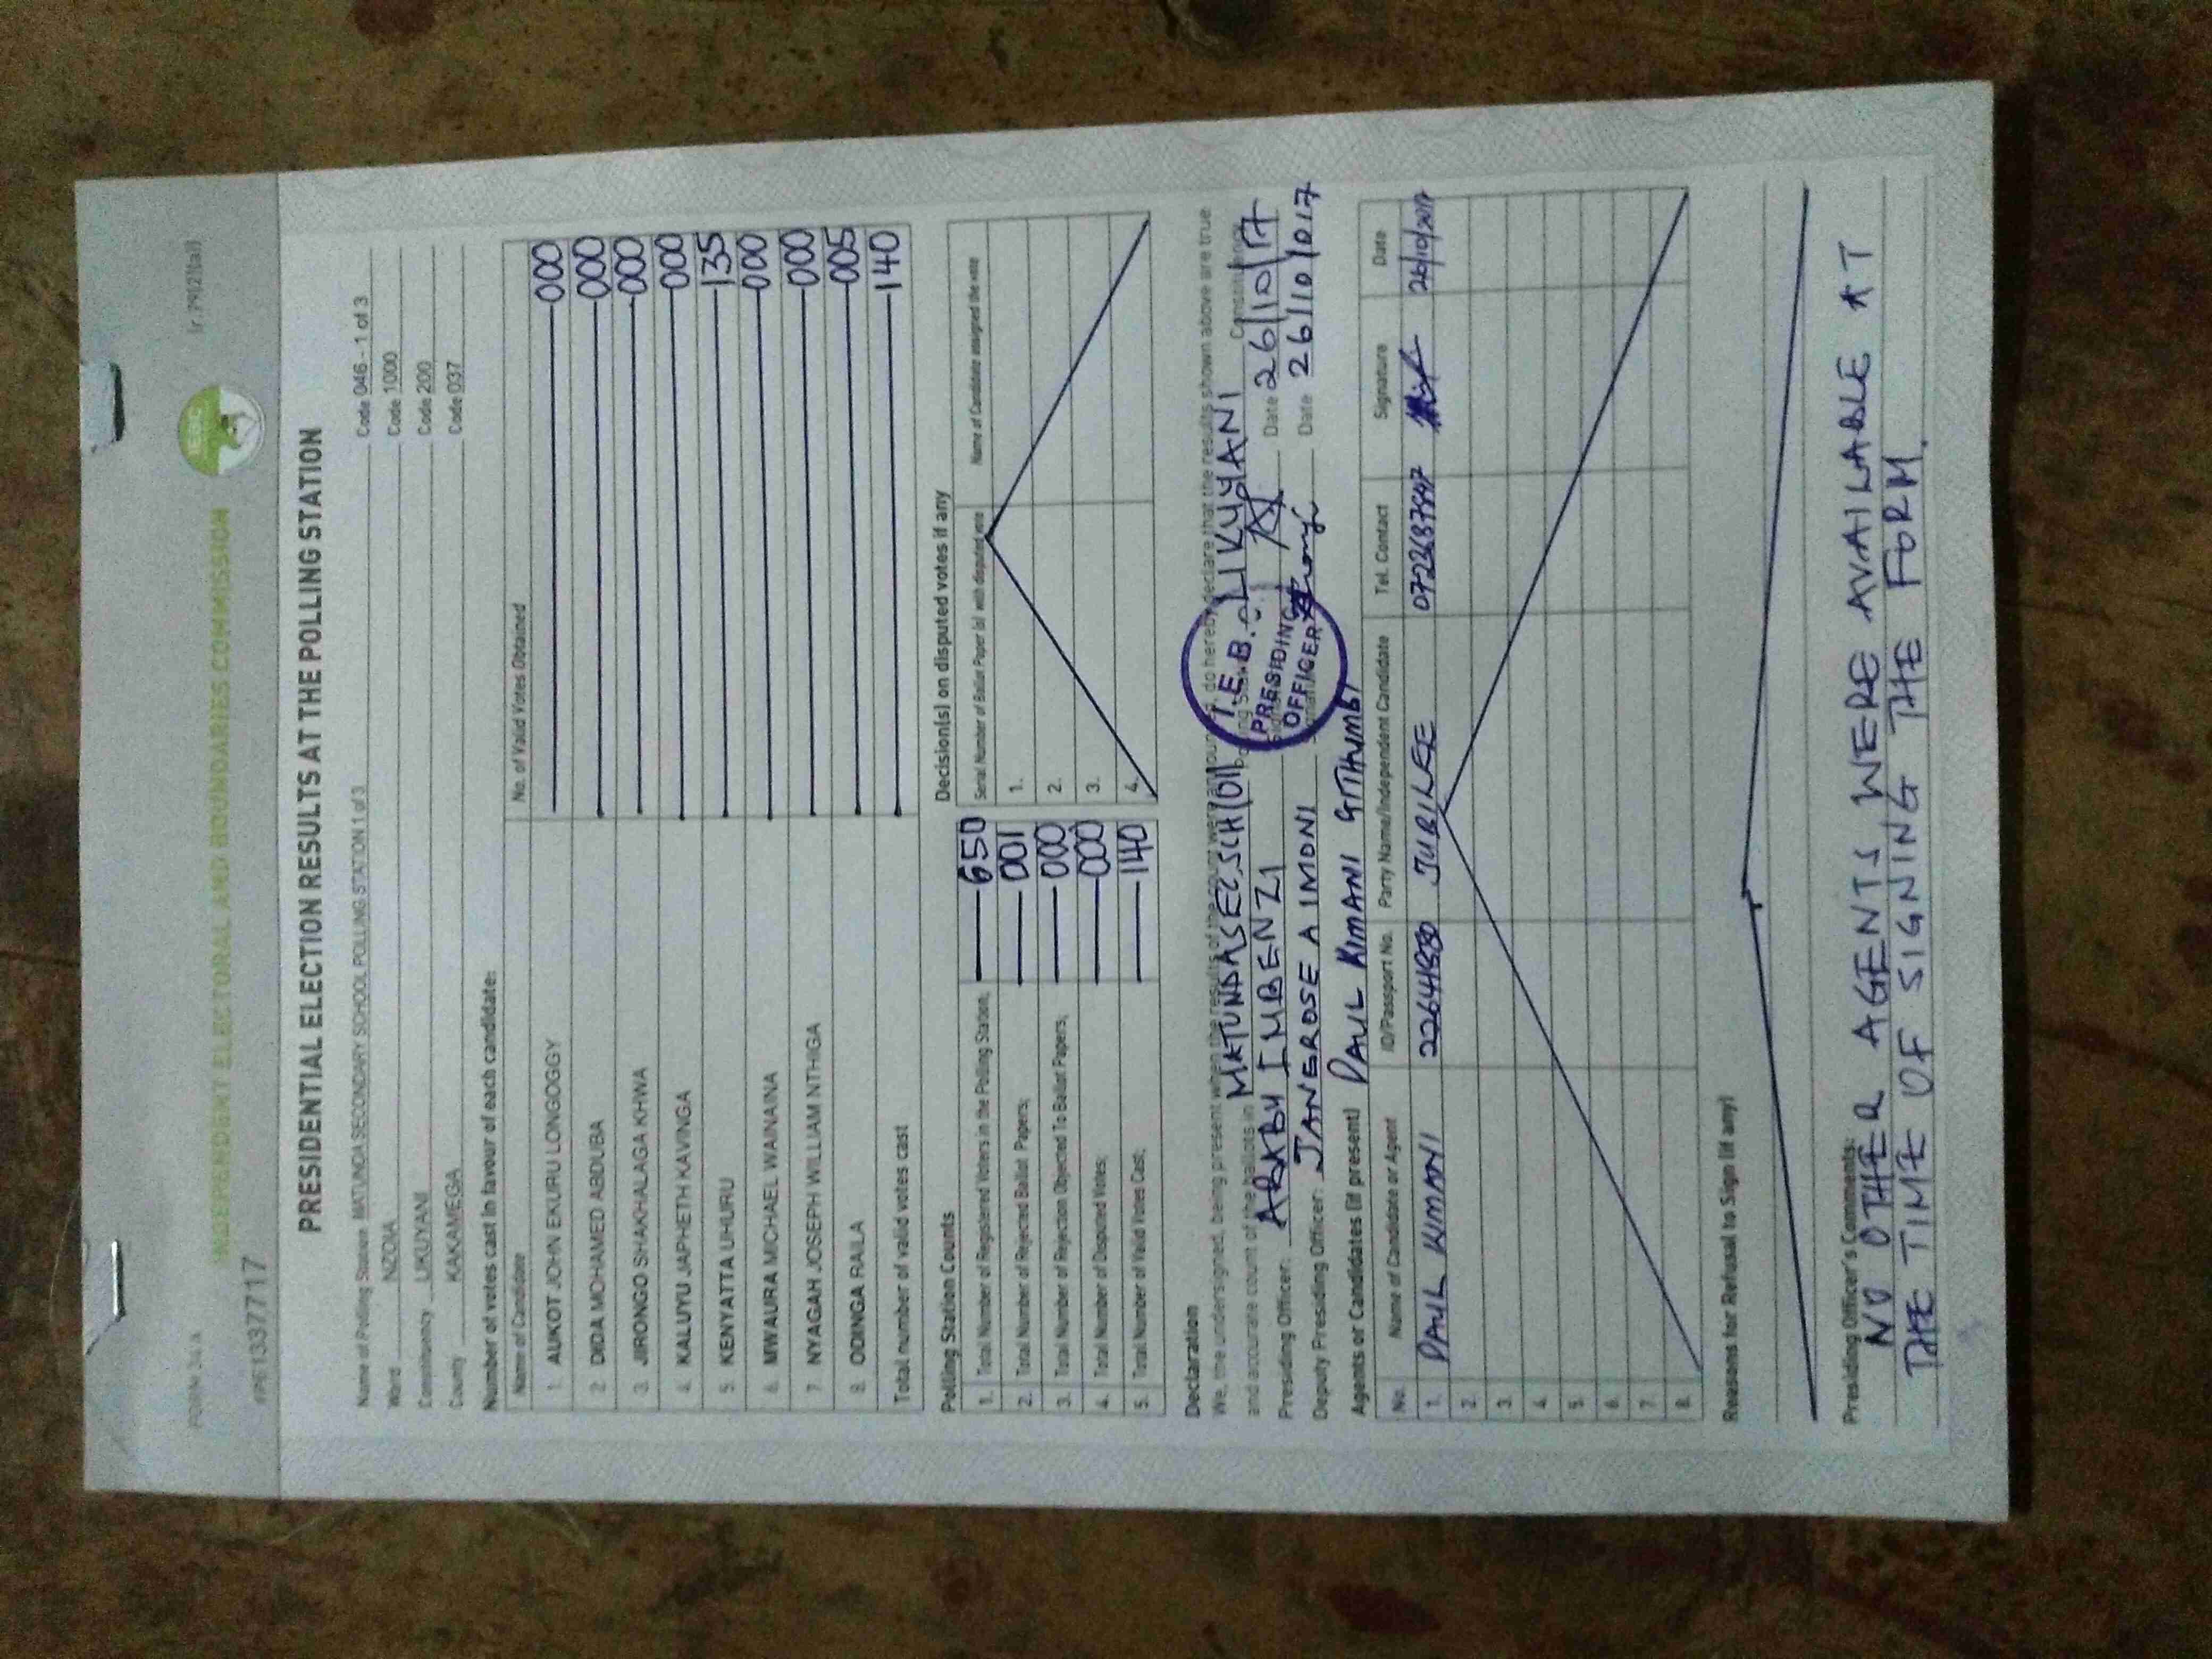 FORM 34A
#PE1337717
(r.79(2)(a))
INDEPENDENT ELECTORAL AND BOUNDARIES COMMISSION
IEBC
PRESIDENTIAL ELECTION RESULTS AT THE POLLING STATION
Name of Polling Station MATUNDA SECONDARY SCHOOL POLLING STATION 1 of 3 Code 046 - 1 of 3
Ward NZOIA Code 1000
Constituency LIKUYANI Code 200
County KAKAMEGA Code 037
Number of votes cast in favour of each candidate:
Name of Candidate No. of Valid Votes Obtained
1. AUKOT JOHN EKURU LONGOGGY 000
2. DIDA MOHAMED ABDUBA 000
3. JIRONGO SHAKHALAGA KHWA 000
4. KALUYU JAPHETH KAVINGA 000
5. KENYATTA UHURU 135
6. MWAURA MICHAEL WAINAINA 000
7. NYAGAH JOSEPH WILLIAM NTHIGA 000
8. ODINGA RAILA 005
Total number of valid votes cast 140
Polling Station Counts
1. Total Number of Registered Voters in the Polling Station; 650
2. Total Number of Rejected Ballot Papers; 001
3. Total Number of Rejection Objected To Ballot Papers; 000
4. Total Number of Disputed Votes; 000
5. Total Number of Valid Votes Cast; 140
Decision(s) on disputed votes if any
Serial Number of Ballot Paper (s) with disputed vote Name of Candidate assigned the vote
1.
2.
3.
4.
Declaration
We, the undersigned, being present when the results of the count were announced, do hereby declare that the results shown above are true
and accurate count of the ballots in MATUNDA SEC. SCH (01) Polling Station LIKUYANI Constituency
Presiding Officer: ARABY IMBENZI Date 26/10/17
Deputy Presiding Officer: JANEROSE A IMONI Date 26/10/017
I.E.B.C.
PRESIDING
OFFICER
Agents or Candidates (if present) PAUL KIMANI GITHUMBI
No. Name of Candidate or Agent ID/Passport No. Party Name/Independent Candidate Tel. Contact Signature Date
1. PAUL KIMANI JUBILEE 26/10/2017
2.
3.
4.
5.
6.
7.
8.
Reasons for Refusal to Sign (if any)
Presiding Officer's Comments:
NO OTHER AGENTS WERE AVAILABLE AT
THE TIME OF SIGNING THE FORM.